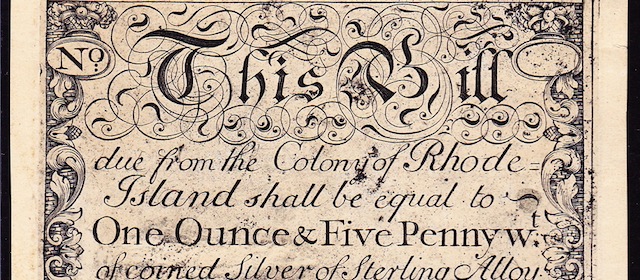 No.
This Bill
due from the Colony of Rhode=
Island shall be equal to
One Ounce & Five Penny wt:
of coined Silver of Sterling Alloy